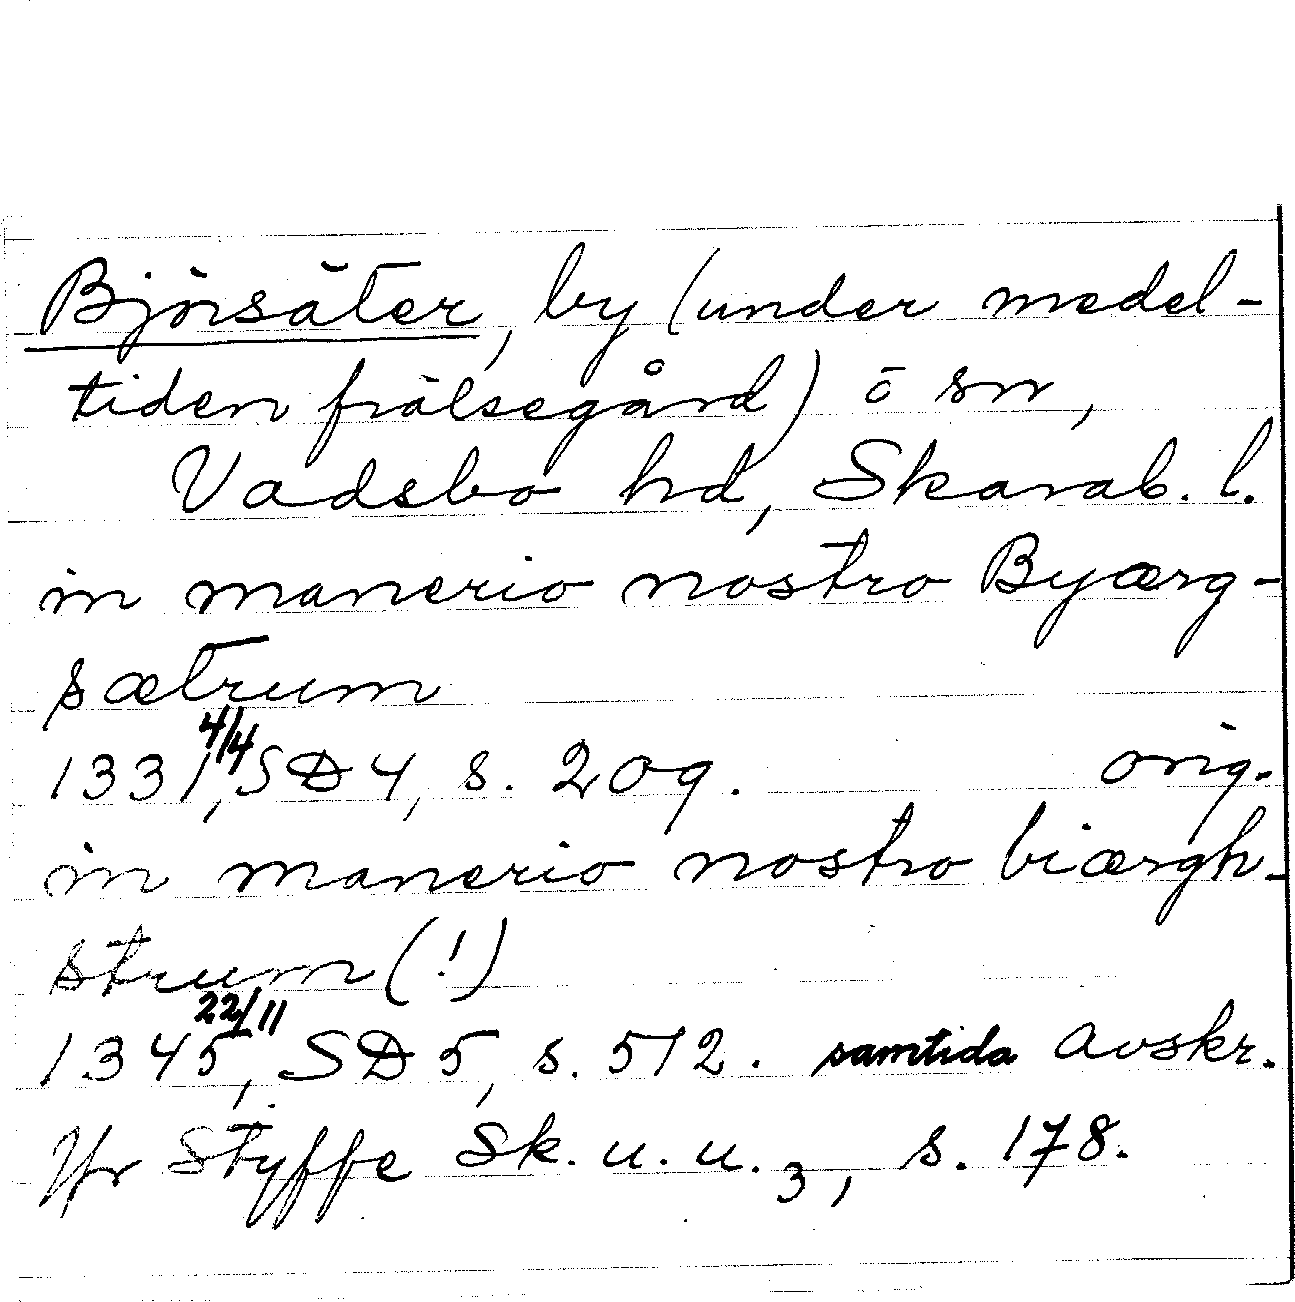 Björsäter, by (under medel-
tiden frälsegård) ō sn,
Vadsbo hd, Skarab. l.
in manerio nostro Byærg-
sætrum
1331 4/4, SD 4, s. 209. orig.
in manerio nostro biærgh-
strum (!)
1345 22/11, SD 5, s. 512. samtida avskr.
Jfr Styffe Sk. u. u. 3, s. 178.